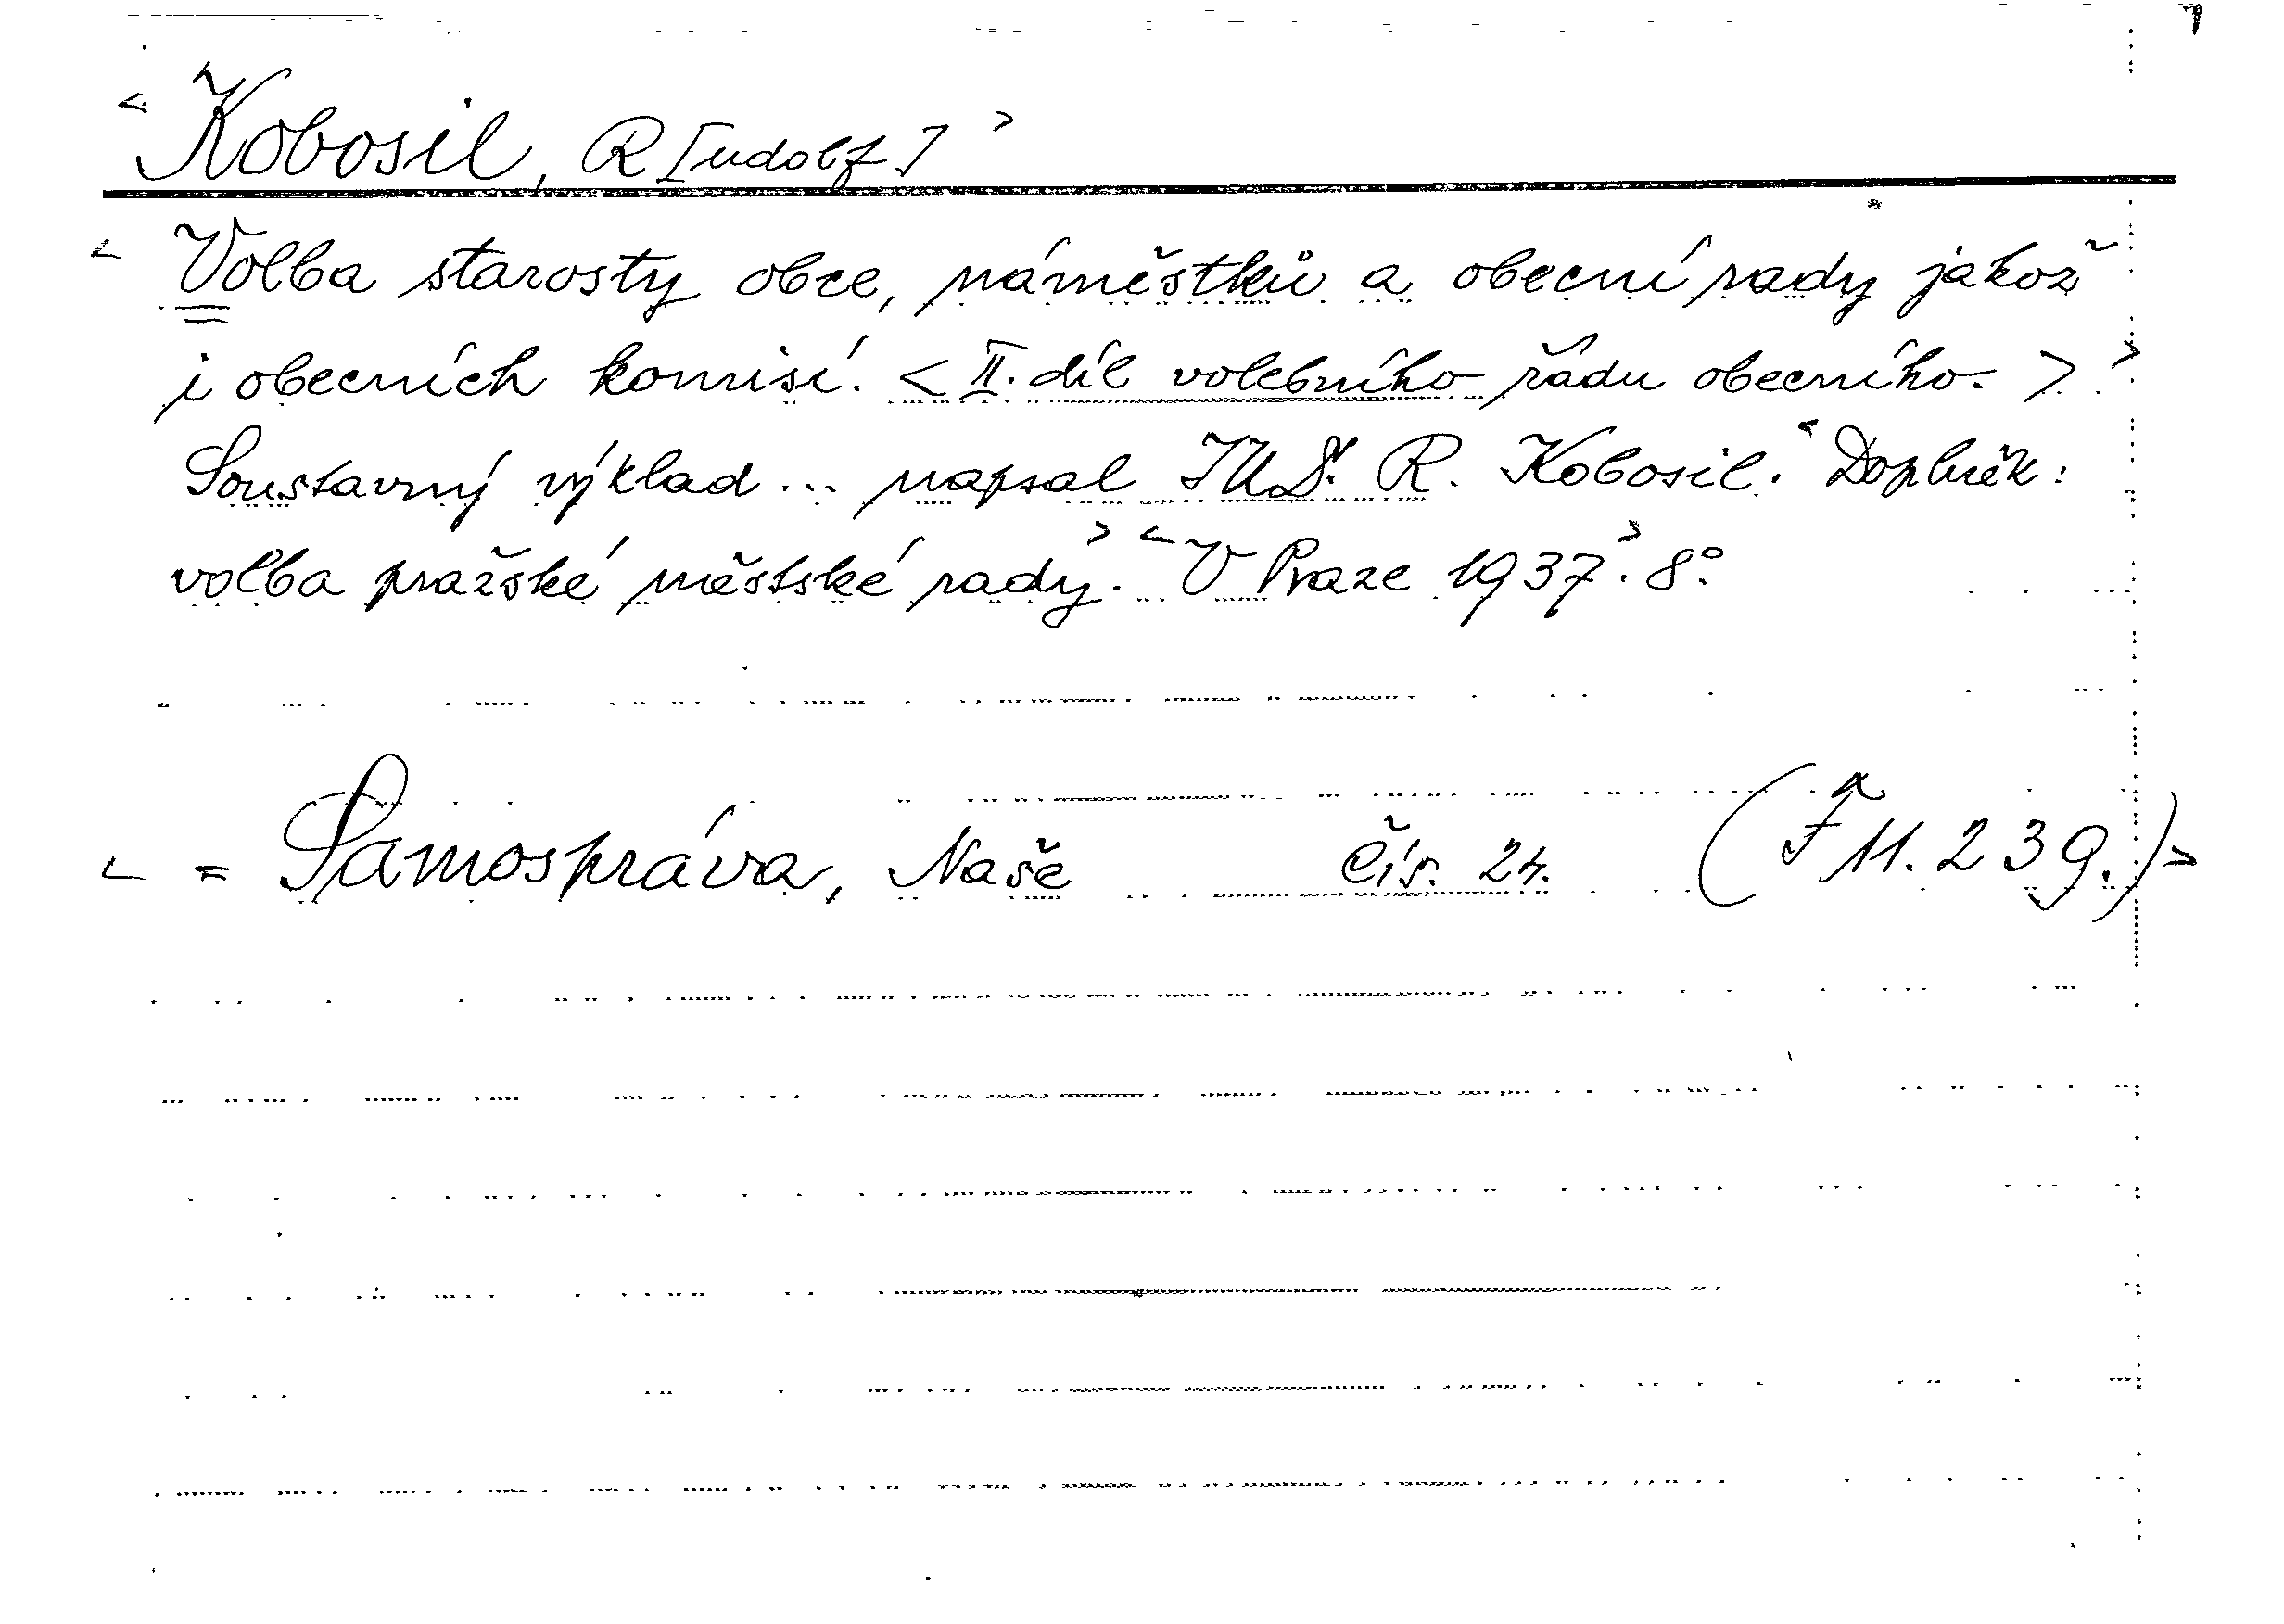 <Kobosil, R[udolf]>
<Volba starosty obce, náměstků a obecní rady jakož
i obecních komisí. <II. díl volebního řádu obecního.>>
Soustavný výklad... napsal JUDr. R. Kobosil. <Doplněk:
volba pražské městské rady.> <V Praze 1937>. 8°.
<= Samospráva, Naše čís. 24. (F 11.239.)>